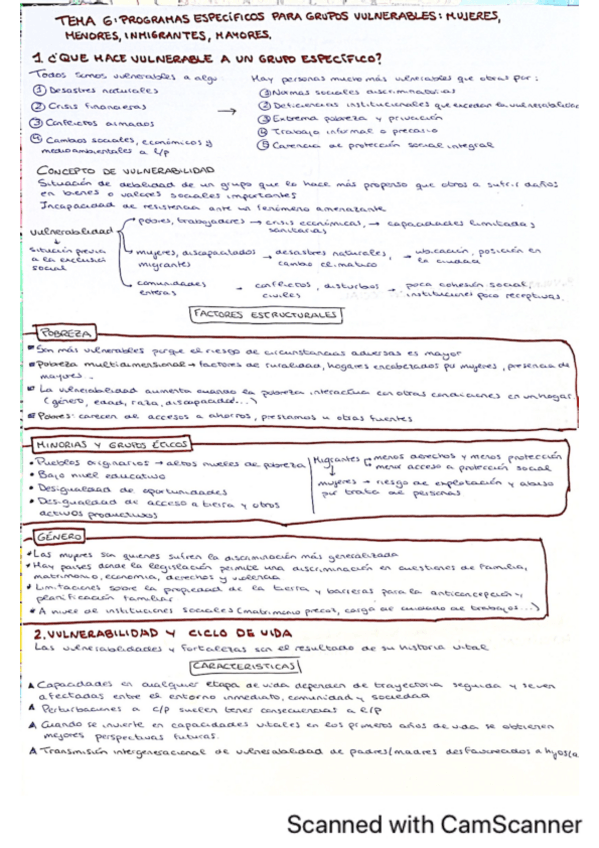 TEMA 6: PROGRAMAS ESPECÍFICOS PARA GRUPOS VULNERABLES: MUJERES,
MENORES, INMIGRANTES, MAYORES.
1. ¿QUE HACE VULNERABLE A UN GRUPO ESPECÍFICO?
Todos somos vulnerables a algo:
① Desastres naturales
② Crisis financieras
③ Conflictos armados
④ Cambios sociales, económicos y
medioambientales a l/p
→
Hay personas mucho más vulnerables que otras por:
① Normas sociales discriminatorias
② Deficiencias institucionales que exceden la vulnerabilidad
③ Extrema pobreza y privación
④ Trabajo informal o precario
⑤ Carencia de protección social integral
CONCEPTO DE VULNERABILIDAD
Situación de debilidad de un grupo que lo hace más propenso que otros a sufrir daños
en bienes o valores sociales importantes
Incapacidad de resistencia ante un fenómeno amenazante
vulnerabilidad
↓
situación previa
a la exclusión
social
pobres, trabajadores → crisis económicas, → capacidades limitadas
sanitarias
mujeres, discapacitados → desastres naturales, → ubicación, posición en
migrantes cambio climático la ciudad
comunidades → conflictos, disturbios → poca cohesión social,
enteras civiles instituciones poco receptivas.
FACTORES ESTRUCTURALES
POBREZA
Son más vulnerables porque el riesgo de circunstancias adversas es mayor
Pobreza multidimensional → factores de ruralidad, hogares encabezados pu mujeres, presencia de
mayores.
La vulnerabilidad aumenta cuando la pobreza interactúa con otras condiciones en un hogar
(género, edad, raza, discapacidad...)
Pobres: carecen de accesos a ahorros, prestamos u otras fuentes
MINORIAS Y GRUPOS ÉTICOS
• Pueblos originarios → altos niveles de pobreza
• Bajo nivel educativo
• Desigualdad de oportunidades
• Desigualdad de acceso a tierra y otros
activos productivos
Migrantes → menos derechos y menos protección
menor acceso a protección social
↓
mujeres → riesgo de explotación y abuso
por trata de personas
GÉNERO
• Las mujeres son quienes sufren la discriminación más generalizada
• Hay países donde la legislación permite una discriminación en cuestiones de familia,
matrimonio, economía, derechos y violencia
• Limitaciones sobre la propiedad de la tierra y barreras para la anticoncepción y
planificación familiar
• A nivel de instituciones sociales (matrimonio precoz, carga de cuidado de trabajos...)
2. VULNERABILIDAD Y CICLO DE VIDA
Las vulnerabilidades y fortalezas son el resultado de su historia vital
CARACTERISTICAS
▲ Capacidades en cualquier etapa de vida dependen de trayectoria seguida y se ven
afectadas entre el entorno inmediato, comunidad y sociedad
▲ Perturbaciones a c/p suelen tener consecuencias a l/p
▲ Cuando se invierte en capacidades vitales en los primeros años de vida se obtienen
mejores perspectivas futuras.
▲ Transmisión intergeneracional de vulnerabilidad de padres/madres desfavorecidos a hijos/a
Scanned with CamScanner